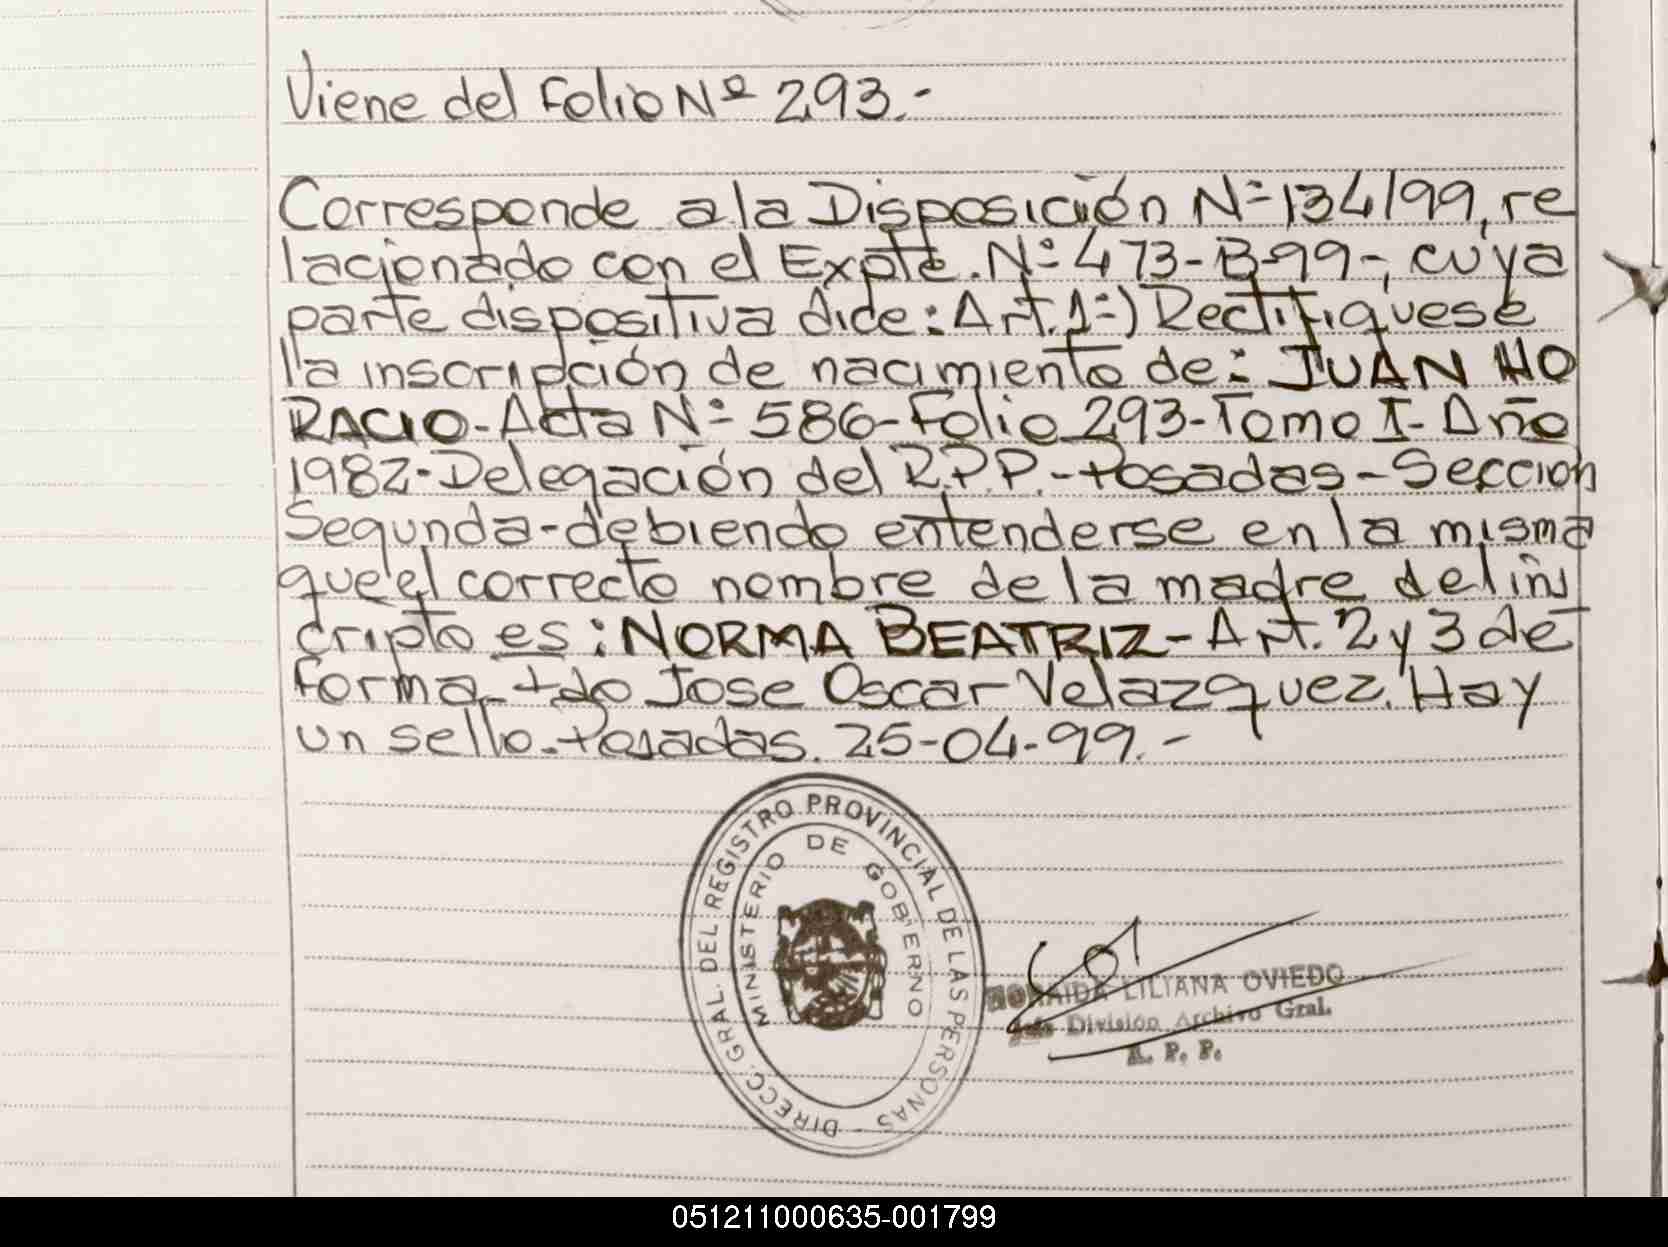 Viene del Folio Nº 293.-
Corresponde a la Disposición Nº 134/99, re
lacionado con el Expte. Nº 473-B-99-, cuya
parte dispositiva dice: Art. 1º) Rectifiquese
la inscripción de nacimiento de: JUAN HO
RACIO-Acta Nº 586-Folio 293-Tomo I-Año
1982-Delegación del R.P.P.-Posadas-Sección
Segunda-debiendo entenderse en la misma
que el correcto nombre de la madre del ins
cripto es: NORMA BEATRIZ-Art. 2 y 3 de
forma-fdo Jose Oscar Velazquez. Hay
un sello.-Posadas. 25-04-99.-
DIRECC. GRAL. DEL REGISTRO PROVINCIAL DE LAS PERSONAS -
MINISTERIO DE GOBIERNO
LILIANA OVIEDO
Jefe División Archivo Gral.
R. P. P.
051211000635-001799